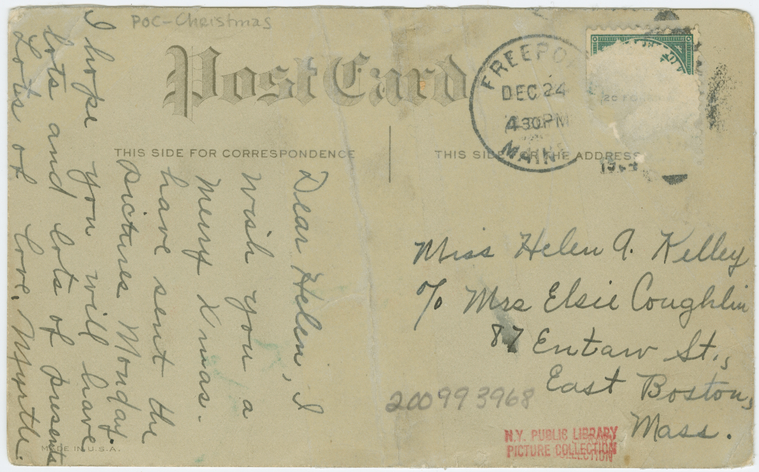 POC-Christmas
Post Card
THIS SIDE FOR CORRESPONDENCE
Dear Helen, I
wish you a
merry Xmas.
have sent the
pictures Monday.
I hope you will have
lots and lots of presents
Lots of love, Myrtle.
MADE IN U.S.A.
FREEPO
DEC 24
4 30 PM
MAINE
THIS SIDE FOR THE ADDRESS
Miss Helen A. Kelley
c/o Mrs Elsie Coughlin
87 Entaw St.,
East Boston,
Mass.
200993968
N.Y. PUBLIC LIBRARY
PICTURE COLLECTION